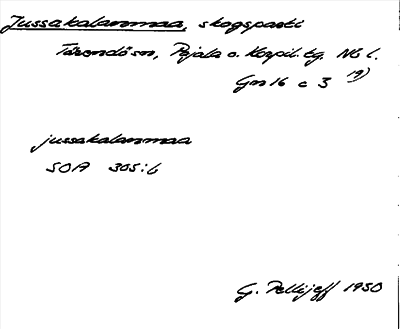 Jussakalanmaa, skogsparti
Tärendö sn, Pajala o. Korpil. tg. Nb l.
Gn 16 c 3 19)
jussakalanmaa
SOA 305:6
G. Pellijeff 1950